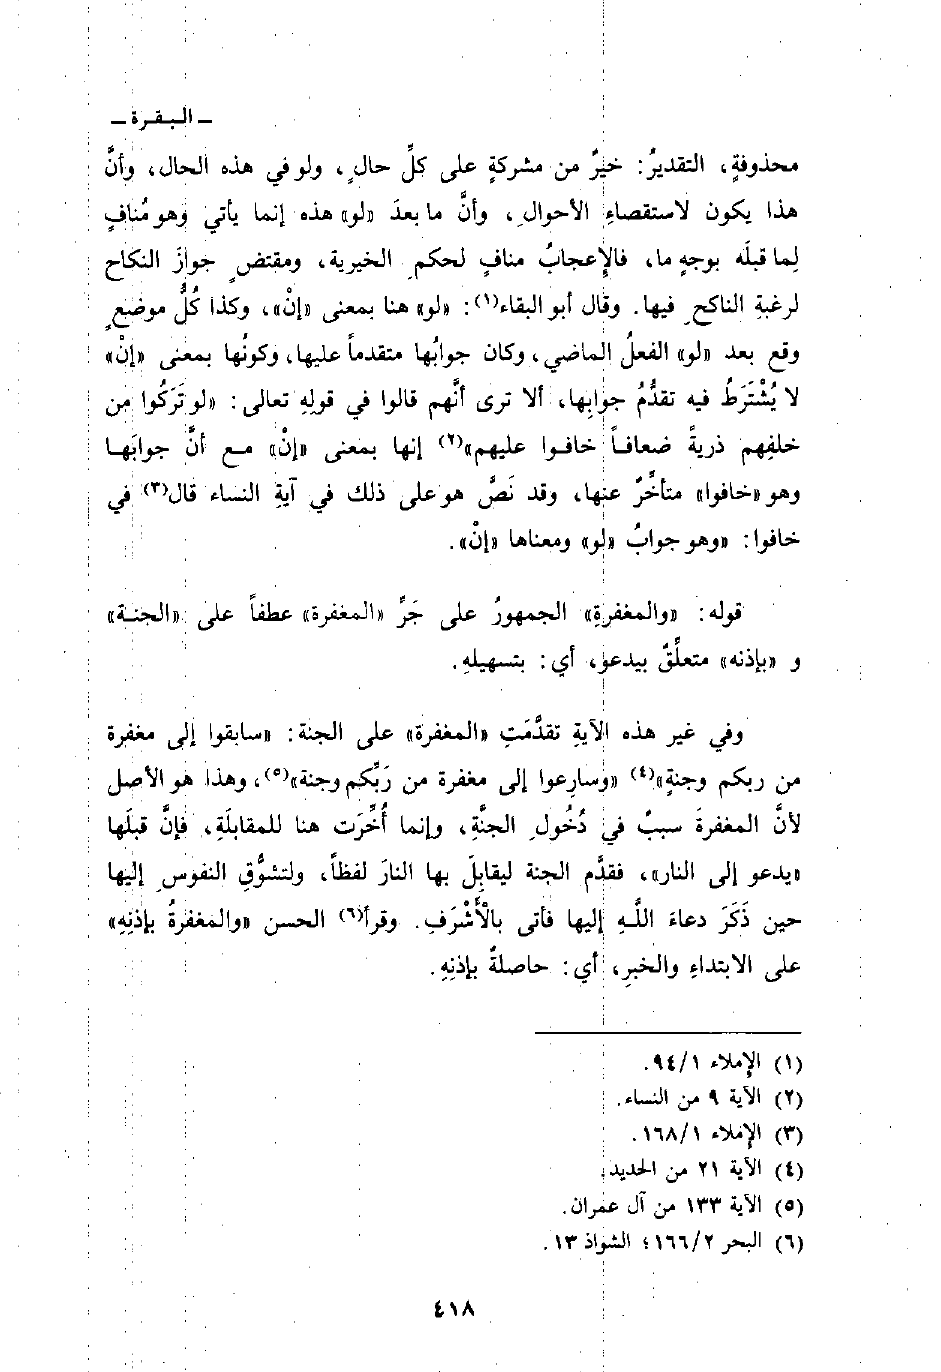 ـ البقرة ـ
محذوفةٍ، التقديرُ: خيرٌ من مشركةٍ على كلِّ حالٍ، ولو في هذه الحال، وأنَّ
هذا يكون لاستقصاءِ الأحوالِ، وأنَّ ما بعدَ «لو» هذه إنما يأتي وهو مُنافٍ
لِما قبلَه بوجهٍ ما، فالإِعجابُ منافٍ لحكمِ الخيرية، ومقتضٍ جوازَ النكاح
لرغبةِ الناكحِ فيها. وقال أبو البقاء(١): «لو» هنا بمعنى «إنْ»، وكذا كُلُّ موضعٍ
وقع بعد «لو» الفعلُ الماضي، وكان جوابُها متقدماً عليها، وكونُها بمعنى «إنْ»
لا يُشْتَرَطُ فيه تقدُّمُ جوابِها، ألا ترى أنَّهم قالوا في قولِه تعالى: «لو تَرَكُوا من
خلفِهم ذريةً ضعافاً خافوا عليهم»(٢) إنها بمعنى «إنْ» مع أنَّ جوابَها
وهو «خافوا» متأخِّرٌ عنها، وقد نَصَّ هو على ذلك في آيةِ النساء قال(٣) في
خافوا: «وهو جوابُ «لو» ومعناها «إنْ».
قوله: «والمغفرةِ» الجمهورُ على جَرِّ «المغفرة» عطفاً على «الجنة»
و «بإذنه» متعلِّقٌ بيدعو، أي: بتسهيلِهِ.
وفي غير هذه الآيةِ تقدَّمَتِ «المغفرة» على الجنة: «سابقوا إلى مغفرة
من ربكم وجنةٍ»(٤) «وسارِعوا إلى مغفرة من رَبِّكم وجنة»(٥)، وهذا هو الأصل
لأنَّ المغفرةَ سببٌ في دُخُولِ الجنَّةِ، وإنما أُخِّرَت هنا للمقابلَةِ، فإنَّ قبلَها
«يدعو إلى النار»، فقدَّم الجنة ليقابِلَ بها النارَ لفظاً، ولتشوُّقِ النفوسِ إليها
حين ذَكَرَ دعاءَ اللَّهِ إليها فأتى بالأَشْرَفِ. وقرأ(٦) الحسن «والمغفرةُ بإذنِهِ»
على الابتداءِ والخبرِ، أي: حاصلةٌ بإذنِهِ.
(١) الإملاء ٩٤/١.
(٢) الآية ٩ من النساء.
(٣) الإملاء ١٦٨/١.
(٤) الآية ٢١ من الحديد.
(٥) الآية ١٣٣ من آل عمران.
(٦) البحر ١٦٦/٢؛ الشواذ ١٣.
٤١٨